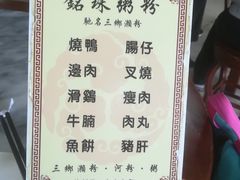 銘珠粥粉
馳名三鄉瀨粉
燒鴨 腸仔
邊肉 叉燒
滑鷄 瘦肉
牛腩 肉丸
魚餅 豬肝
三鄉瀨粉·河粉·粥